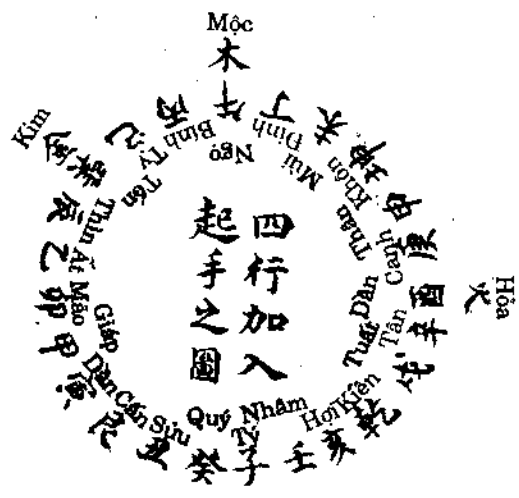 Mộc
木
Kim
金
Hỏa
火
午 丁 未 坤 申 庚 酉 辛 戌 乾 亥 壬 子 癸 丑 艮 寅 甲 卯 乙 辰 巽 巳 丙
Ngọ Đinh Mùi Khôn Thân Canh Dần Tân Tuất Kiền Hợi Nhâm Tý Quý Sửu Cấn Dần Giáp Mão Ất Thìn Tốn Tỵ Bính
四行加入
起手之圖